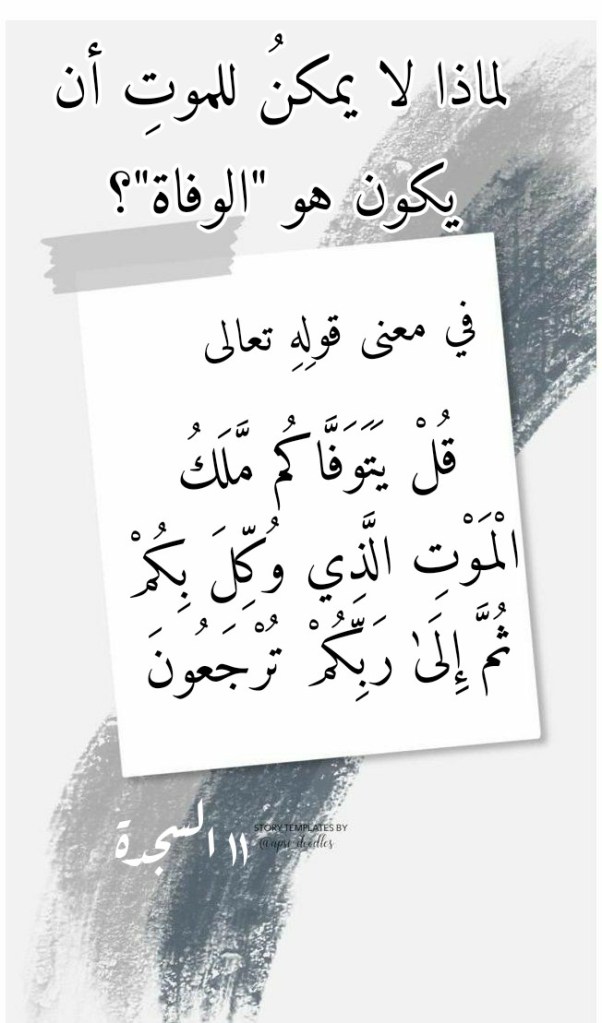 لماذا لا يمكنُ للموتِ أن
يكون هو "الوفاة"؟
في معنى قولِهِ تعالى
قُلْ يَتَوَفَّاكُم مَّلَكُ
الْمَوْتِ الَّذِي وُكِّلَ بِكُمْ
ثُمَّ إِلَىٰ رَبِّكُمْ تُرْجَعُونَ
١١ السجدة
STORY TEMPLATES BY